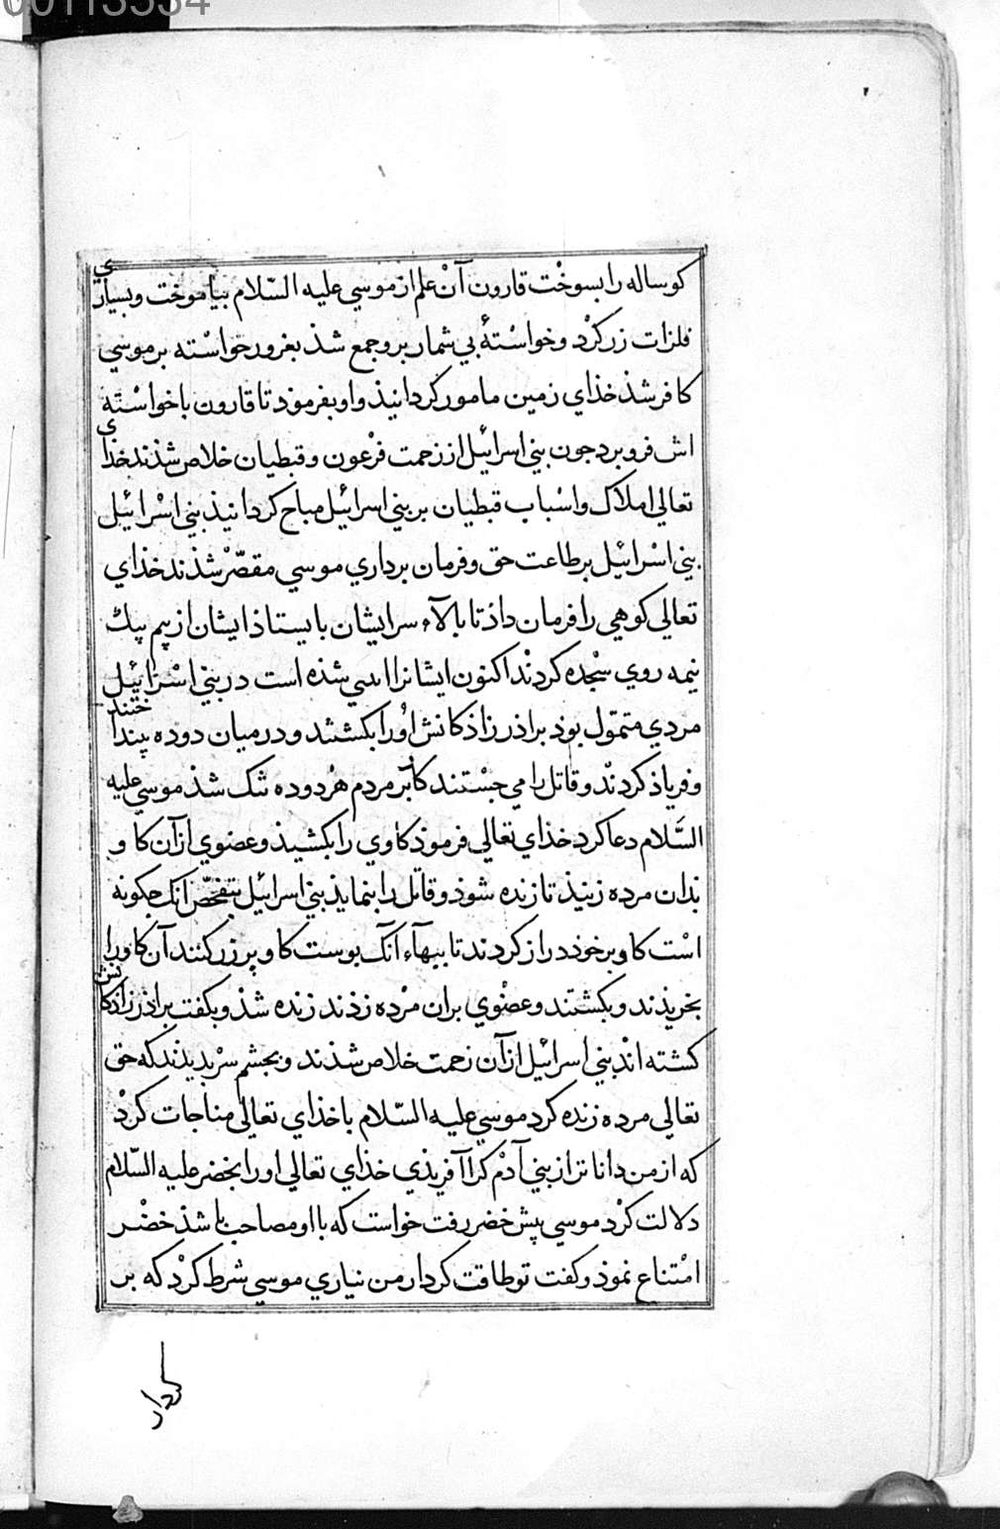 00113534
كوساله را بسوخْت قارون آنْ علم از موسي عليه السّلام بياموخت و بسياري
فلزات زر كرْد و خواسْتهٔ بي شمار برو جمع شذ بغرور خواسْته بر موسي
كافر شذ خذاي زمين مامور كردانيذ و او بفرموذ تا قارون با خواسْته
اش فرو برد جون بني اسرائيل از زحمت فرْعون و قبطيان خلاص شذند خذاي
تعالي املاك و اسْباب قبطيان بر بني اسرائيل مباح كردانيذ بني اسْرائيل
بني اسْرائيل بر طاعت حق و فرمان برداري موسي مقصّرْ شذند خذاي
تعالي كوهي را فرمان داذ تا بالآء سر ايشان بايستاذ ايشان از بيم بيك
نيمه روي سجْده كردنْد اكنون ايشانرا شذه است در بني اسْرائيل
مردي متموّل بوذ براذر زاذكانش اوْرا بكشتند و در ميان دو ده بينداختند
و فرياذ كردنْد و قاتل را مي جسْتند كار بر مردم هرْ دو ده تنك شذ موسي عليه
السَّلام دعا كرد خذاي تعالي فرموذ كاوي را بكشيذ و عضوي از آن كاو
بذان مرده زنيذ تا زنده شوذ و قاتل را بنمايذ بني اسرائيل بتفحّص آنك جكونه
اسْت كاو بر خوذ دراز كردند تا ببهآء آنك بوست كاو پر زر كنند آن كاورا
بخريذند و بكشتند و عضْوي بران مرْده زذند زنده شذ و بكفت براذر زاذكانش
كشته انْد بني اسرائيل از آن زحمت خلاص شذند و بجشم سرْ بديذند كه حق
تعالي مرده زنده كرد موسي عليه السّلام با خذاي تعالي مناجات كردْ
كه از من دانا تر از بني آدم كرا آفريذي خذاي تعالي اورا بخضر عليه السّلام
دلالت كرْد موسي پيش خضر رفت خواست كه با او مصاحب باشذ خضْر
امْتناع نموذ و كفت تو طاقت كردار من نياري موسي شرط كرْد كه بر
كردار